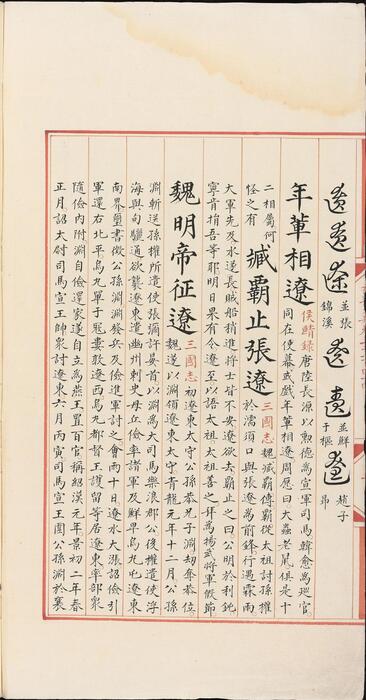 遼遼遼並張錦溪遼遼並鮮于樞遼趙子昂
年輩相遼侯鯖錄唐陸長源以勲德為宣軍司馬韓愈為廵官
同在使幕或戲年輩相遼周愿曰大蟲老鼠俱是十
二相屬何
怪之有
臧霸止張遼三國志魏臧霸傳霸從太祖討孫權
於濡須口與張遼為前鋒行遇霖雨
大軍先及水遂長賊船稍進將士皆不安遼欲去霸止之曰公明於利鈍
寧肯捐吾等耶明日果有令遼至以語太祖太祖善之拜為揚武將軍假節
魏明帝征遼三國志初遼東太守公孫恭兄子淵劫奪恭位
魏遂以淵領遼東太守青龍元年十二月公孫
淵斬送孫權所遣使張彌許晏首以淵為大司馬樂浪郡公後權遣使浮
海與句驪通欲襲遼東遣幽州刺史毋丘儉率諸軍及鮮卑烏丸屯遼東
南界璽書徵公孫淵淵發兵反儉進軍討之會雨十日遼水大漲詔儉引
軍還右北平烏丸單于寇婁敦遼西烏丸都督王護留等居遼東率部眾
隨儉內附淵自儉還家遂自立為燕王置百官稱紹漢元年景初二年春
正月詔大尉司馬宣王帥眾討遼東六月丙寅司馬宣王圍公孫淵於襄